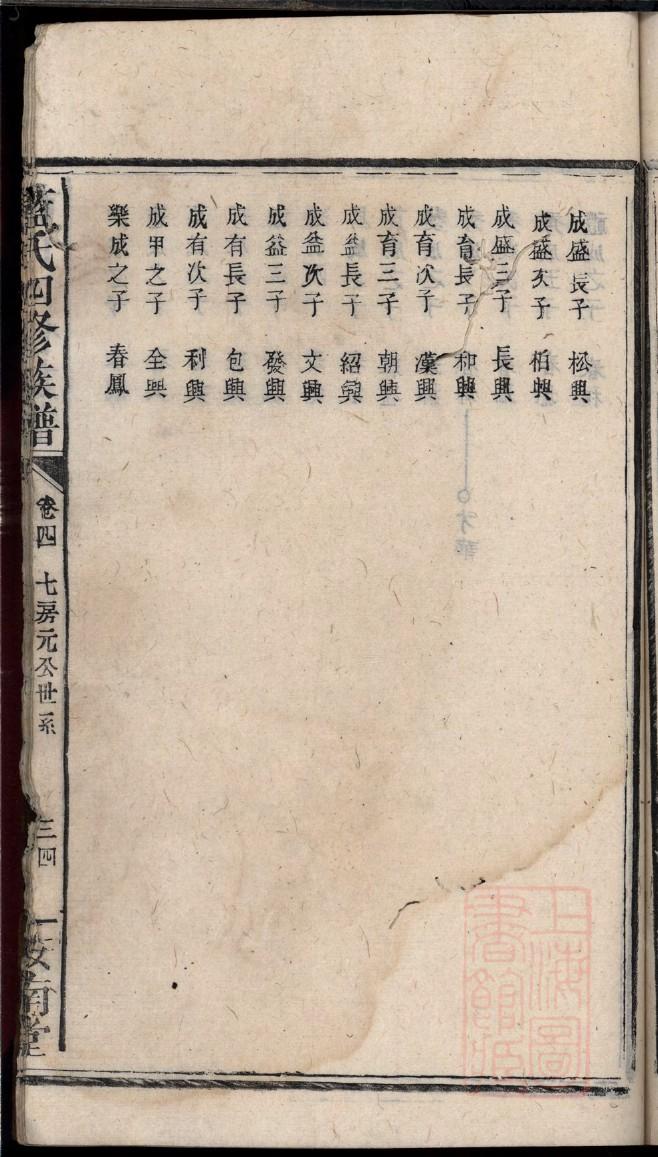 成盛長子 松興
成盛次子 栢興
成盛三子 長興
成育長子 和興
成育次子 漢興
成育三子 朝興
成益長子 紹興
成益次子 文興
成益三子 發興
成有長子 包興
成有次子 利興
成甲之子 全興
樂成之子 春鳳
藍氏四修族譜 卷四 七房元公世系 三四 南堂
上海圖書館藏